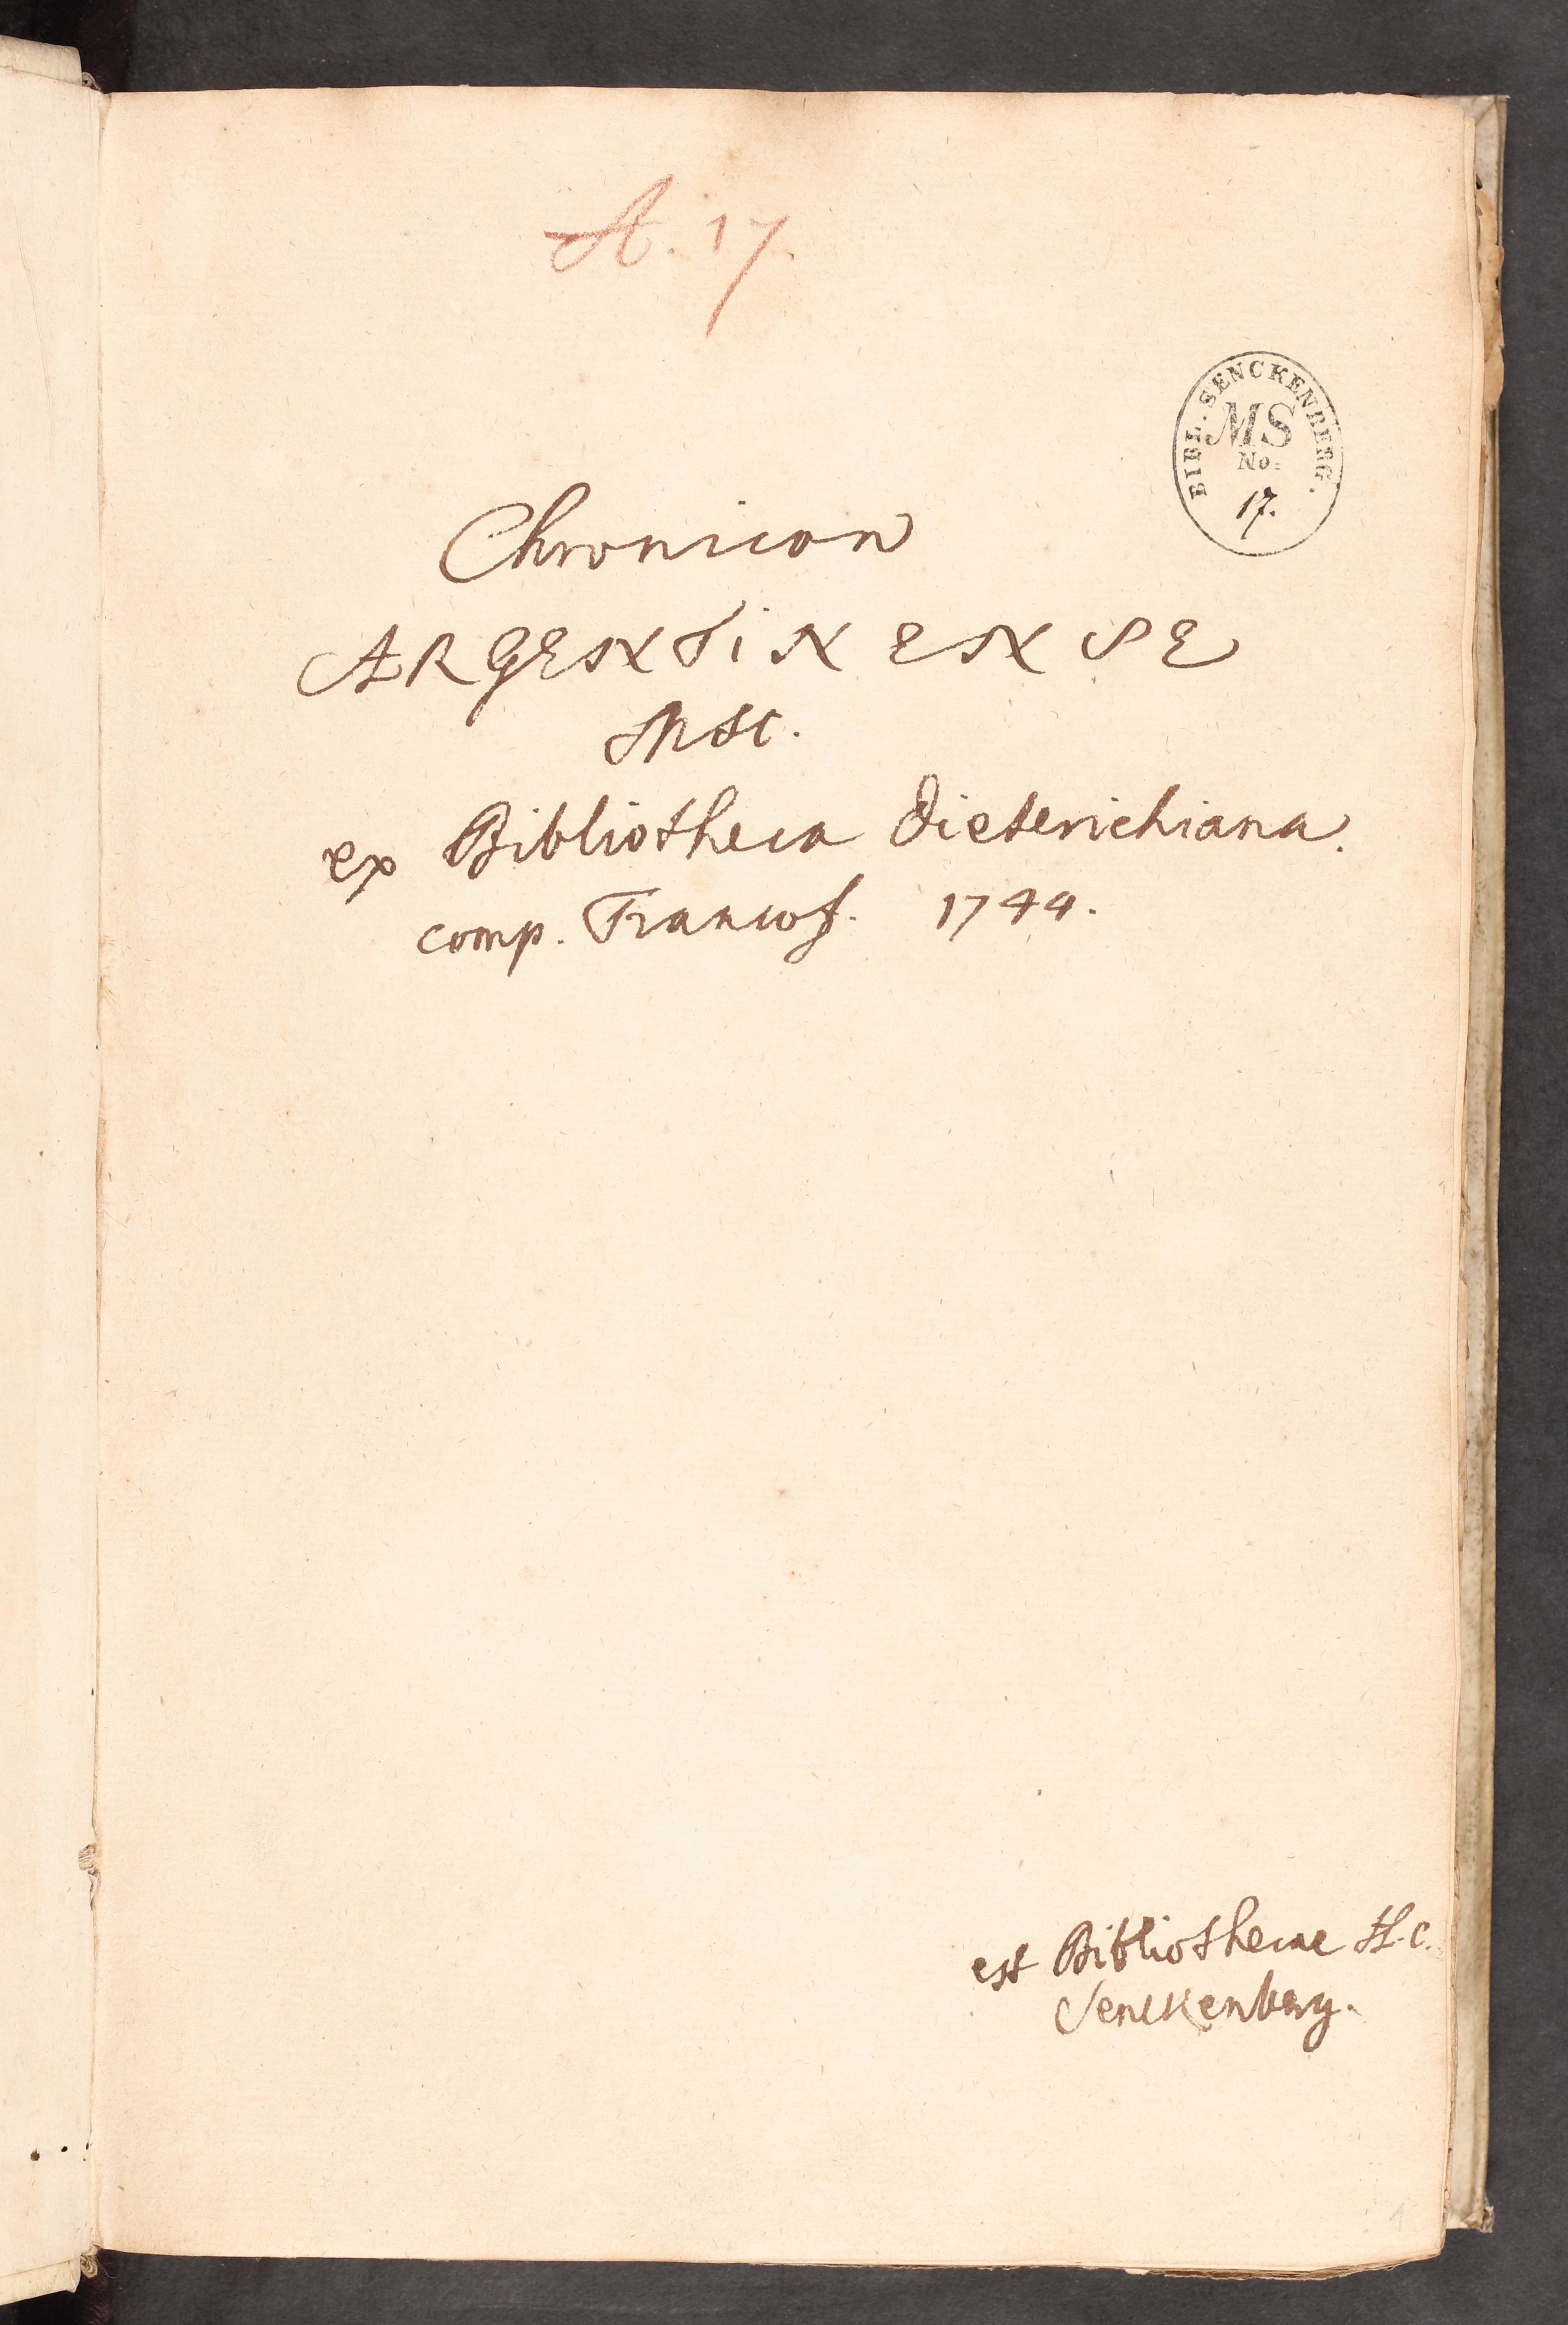 A. 17.
BIBL. SENCKENBERG.
MS
No.
17.
Chronicon
ARGENTINENSE
Msc.
ex Bibliotheca Dieterichiana.
comp. Francof. 1744.
est Bibliothecae H. C.
Senckenberg.
1